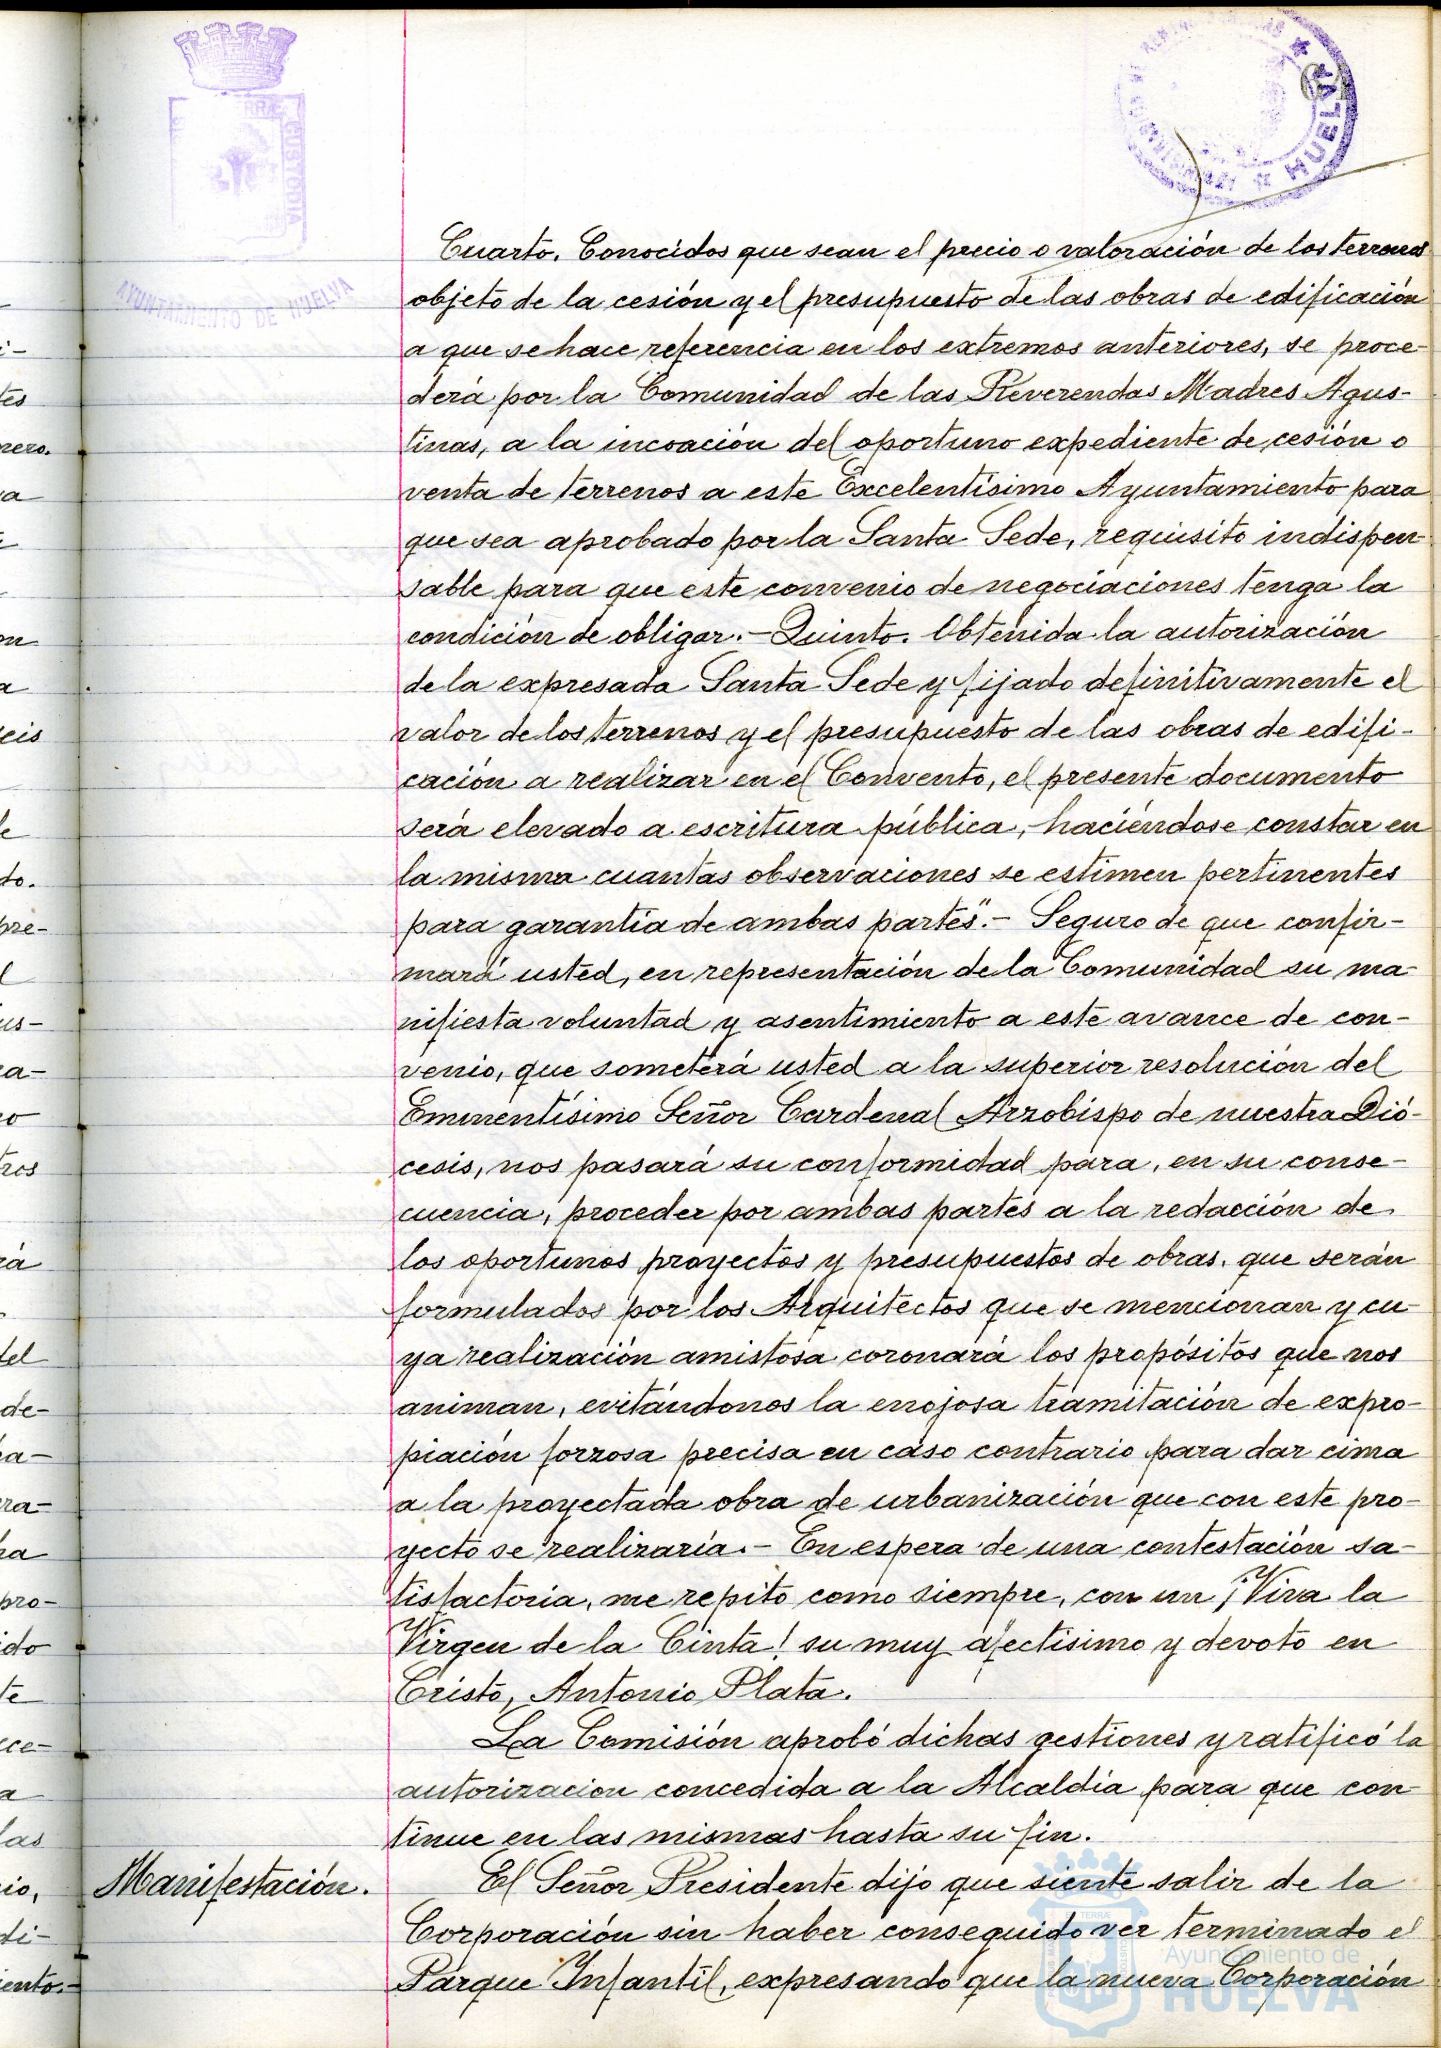 AYUNTAMIENTO DE HUELVA
CUSTODIA
HUELVA
Cuarto. Conocidos que sean el precio o valoración de los terrenos
objeto de la cesión y el presupuesto de las obras de edificación
a que se hace referencia en los extremos anteriores, se proce-
derá por la Comunidad de las Reverendas Madres Agus-
tinas, a la incoación del oportuno expediente de cesión o
venta de terrenos a este Excelentísimo Ayuntamiento para
que sea aprobado por la Santa Sede, requisito indispen-
sable para que este convenio de negociaciones tenga la
condición de obligar.- Quinto. Obtenida la autorización
de la expresada Santa Sede y fijado definitivamente el
valor de los terrenos y el presupuesto de las obras de edifi-
cación a realizar en el Convento, el presente documento
será elevado a escritura pública, haciéndose constar en
la misma cuantas observaciones se estimen pertinentes
para garantía de ambas partes".- Seguro de que confir-
mará usted, en representación de la Comunidad su ma-
nifiesta voluntad y asentimiento a este avance de con-
venio, que someterá usted a la superior resolución del
Eminentísimo Señor Cardenal Arzobispo de nuestra Dió-
cesis, nos pasará su conformidad para, en su conse-
cuencia, proceder por ambas partes a la redacción de
los oportunos proyectos y presupuestos de obras, que serán
formulados por los Arquitectos que se mencionan y cu-
ya realización amistosa coronará los propósitos que nos
animan, evitándonos la enojosa tramitación de expro-
piación forzosa precisa en caso contrario para dar cima
a la proyectada obra de urbanización que con este pro-
yecto se realizaría.- En espera de una contestación sa-
tisfactoria, me repito como siempre, con un ¡Viva la
Virgen de la Cinta! su muy afectísimo y devoto en
Cristo, Antonio Plata.
La Comisión aprobó dichas gestiones y ratificó la
autorizacion concedida a la Alcaldía para que con-
tinue en las mismas hasta su fin.
Manifestación. El Señor Presidente dijo que siente salir de la
Corporación sin haber conseguido ver terminado el
Parque Infantil, expresando que la nueva Corporación
Ayuntamiento de
HUELVA